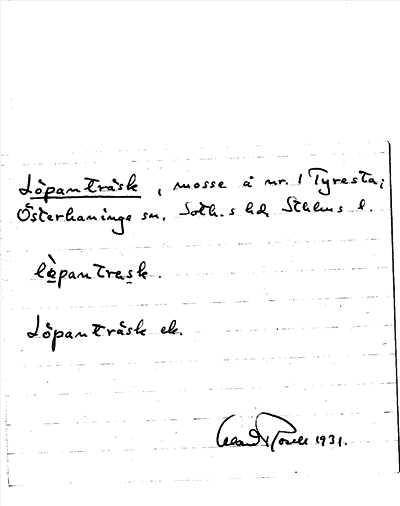 Löpanträsk, mosse å nr. 1 Tyresta;
Österhaninge sn, Soth.s hd, Sthlms l.
lö̀pantrask.
Löpanträsk ek.
1931.